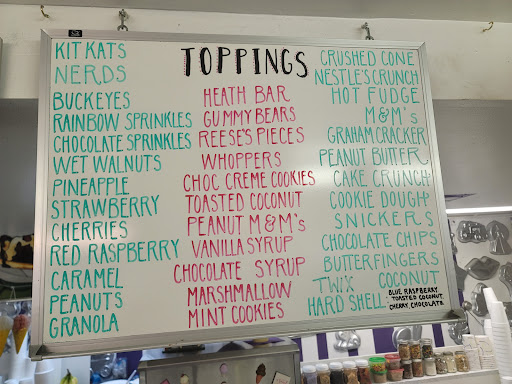 TOPPINGS
KIT KATS
NERDS
BUCKEYES
RAINBOW SPRINKLES
CHOCOLATE SPRINKLES
WET WALNUTS
PINEAPPLE
STRAWBERRY
CHERRIES
RED RASPBERRY
CARAMEL
PEANUTS
GRANOLA
HEATH BAR
GUMMY BEARS
REESE'S PIECES
WHOPPERS
CHOC CREME COOKIES
TOASTED COCONUT
PEANUT M&M's
VANILLA SYRUP
CHOCOLATE SYRUP
MARSHMALLOW
MINT COOKIES
CRUSHED CONE
NESTLE'S CRUNCH
HOT FUDGE
M&M's
GRAHAM CRACKER
PEANUT BUTTER
CAKE CRUNCH
COOKIE DOUGH
SNICKERS
CHOCOLATE CHIPS
BUTTERFINGERS
TWIX COCONUT
HARD SHELL: BLUE RASPBERRY
TOASTED COCONUT
CHERRY, CHOCOLATE